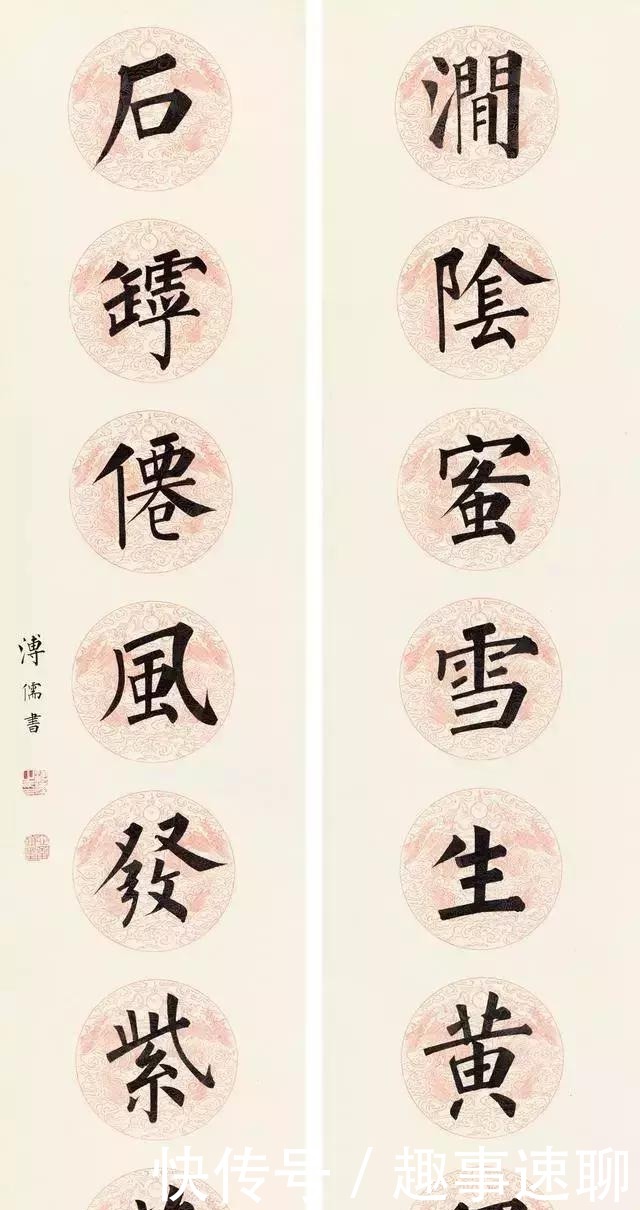 澗陰蜜雪生黄
石罅僊風發紫
溥儒書
快传号/趣事速聊